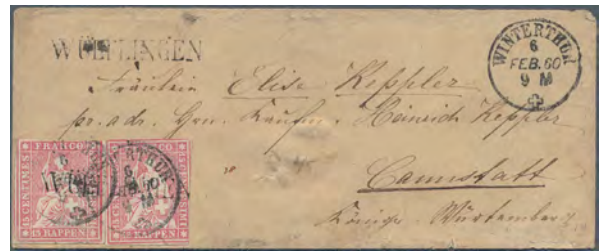 WÜLFLINGEN
WINTERTHUR
6
FEB. 60
9 M
Fräulein Elise Keppler
pr. adr. Hrn. Kaufm. Heinrich Keppler
Cannstatt
Königr. Würtemberg
FRANCO
15 CENTIMES
15 RAPPEN
WINTERTHUR
6
FEB. 60
9 M